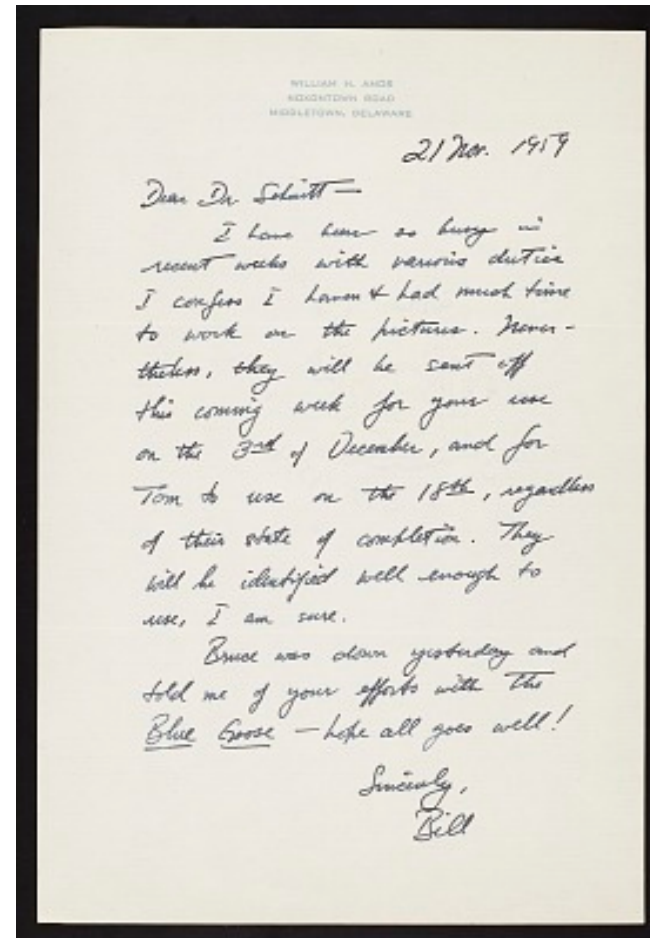 WILLIAM H. AMOS
NOXONTOWN ROAD
MIDDLETOWN, DELAWARE
21 Nov. 1959
Dear Dr. Schmitt —
I have been so busy in
recent weeks with various duties
I confess I haven't had much time
to work on the pictures. Never-
theless, they will be sent off
this coming week for your use
on the 3rd of December, and for
Tom to use on the 18th, regardless
of their state of completion. They
will be identified well enough to
use, I am sure.
Bruce was down yesterday and
told me of your efforts with the
Blue Goose — hope all goes well!
Sincerely,
Bill